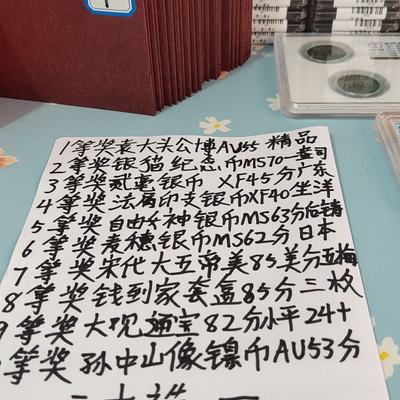 1等奖袁大头公博AU55 精品
2等奖银猫纪念币MS70一盎司
3等奖贰毫银币 XF45分广东
4等奖法属印支银币XF40坐洋
5等奖自由女神银币MS63分后铸
6等奖 银币MS62分日本
7等奖宋代大五帝美85美分五枚
8等奖钱到家套盒85分三枚
9等奖大观通宝82分小平24+
等奖孙中山像镍币AU53分